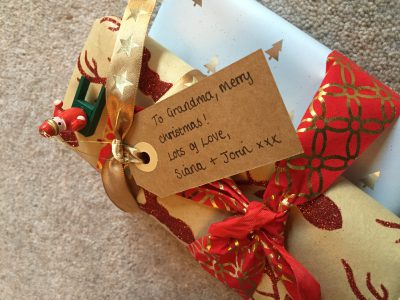 To Grandma, Merry
Christmas!
Lots of Love,
Siana + Jonn xxx